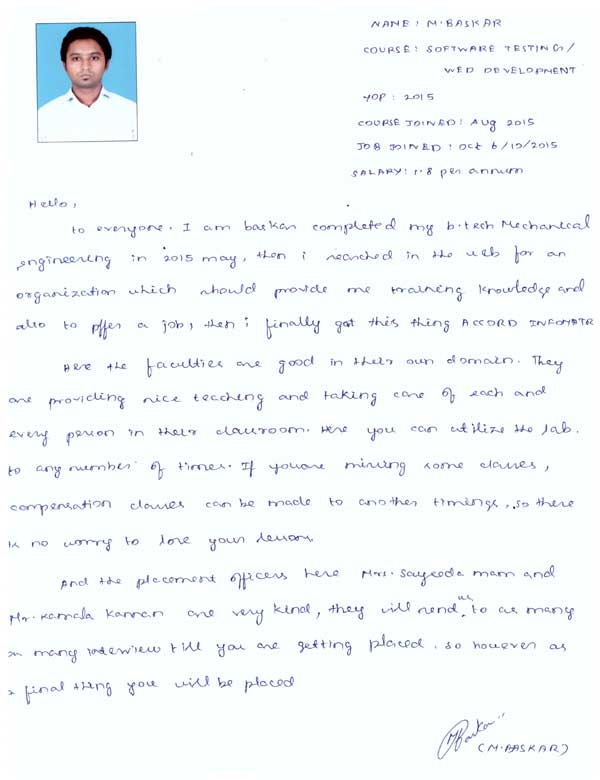 NAME : M.BASKAR
COURSE : SOFTWARE TESTING/
WED DEVELOPMENT
YOP : 2015
COURSE JOINED : AUG 2015
JOB JOINED : Oct 6/10/2015
SALARY : 1.8 per annum
Hello,
to everyone. I am baskar completed my b.tech Mechanical
engineering in 2015 may, then i searched in the web for an
organization which should provide me training knowledge and
also to offer a job, then i finally got this thing ACCORD INFOMATR
Here the faculties are good in their own domain. They
are providing nice teaching and taking care of each and
every person in their classroom. Here you can utilize the lab.
to any number of times. If you are missing some classes,
compensation classes can be made to another timings, so there
is no worry to lose your lessons
And the placement officers here Mrs. Sayeeda mam and
Mr. Kamala Kannan are very kind, they will send us to as many
as many interview till you are getting placed. so however as
a final thing you will be placed
M Baskar
(M.BASKAR)